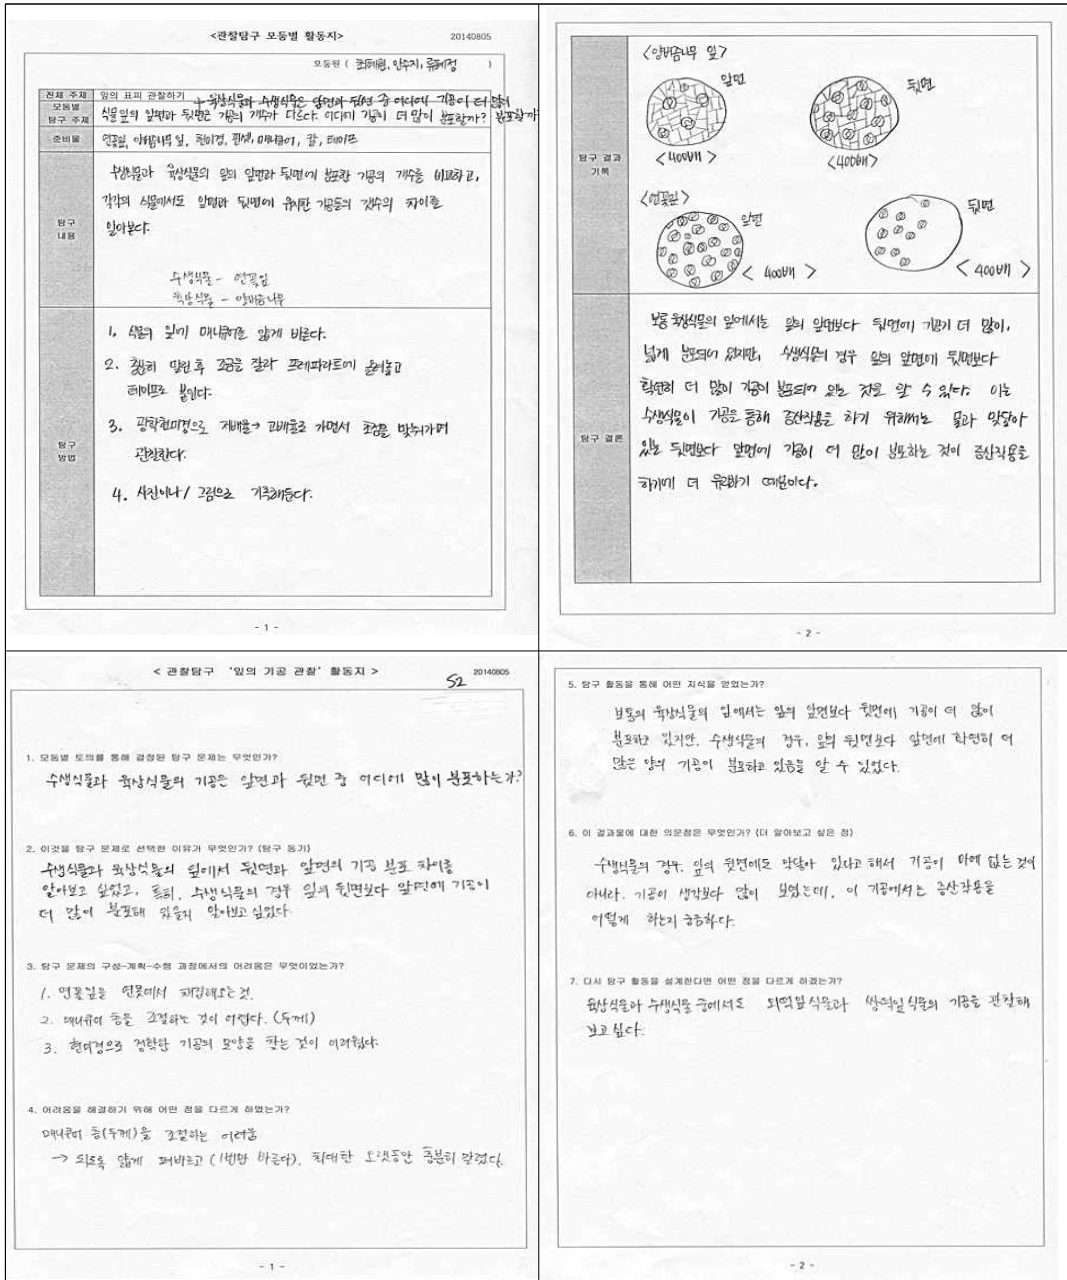 <관찰탐구 모둠별 활동지>
20140805
모둠원 ( 최혜원, 안수지, 류혜정 )
전체 주제 잎의 표피 관찰하기
+ 육상식물과 수생식물은 앞면과 뒷면 중 어디에 기공이 더 많이 분포할까?
모둠별 탐구 주제 식물잎의 앞면과 뒷면은 기공의 개수가 다르다. 어디에 기공이 더 많이 분포할까?
준비물 연꽃잎, 양버즘나무 잎, 현미경, 핀셋, 매니큐어, 칼, 테이프
탐구 내용
수생식물과 육상식물의 잎의 앞면과 뒷면에 분포한 기공의 개수를 비교하고,
각각의 식물에서도 앞면과 뒷면에 위치한 기공들의 갯수의 차이를
알아본다.
수생식물 - 연꽃잎
육상식물 - 양버즘나무
탐구 방법
1. 식물의 잎에 매니큐어를 얇게 바른다.
2. 충분히 말린 후 조금을 잘라 프레파라트에 올려놓고
테이프로 붙인다.
3. 광학현미경으로 저배율→고배율로 가면서 초점을 맞춰가며
관찰한다.
4. 사진이나 / 그림으로 기록해둔다.
- 1 -
탐구 결과 기록
<양버즘나무 잎>
앞면
뒷면
<400배>
<400배>
<연꽃잎>
앞면
뒷면
<400배>
<400배>
탐구 결론
보통 육상식물의 잎에서는 잎의 앞면보다 뒷면에 기공이 더 많이,
넓게 분포되어 있지만, 수생식물의 경우 잎의 앞면에 뒷면보다
확연히 더 많이 기공이 분포되어 있는 것을 알 수 있다. 이는
수생식물이 기공을 통해 증산작용을 하기 위해서는 물과 맞닿아
있는 뒷면보다 앞면에 기공이 더 많이 분포하는 것이 증산작용을
하기에 더 유리하기 때문이다.
- 2 -
< 관찰탐구 '잎의 기공 관찰' 활동지 >
20140805
S2
1. 모둠별 토의를 통해 결정된 탐구 문제는 무엇인가?
수생식물과 육상식물의 기공은 앞면과 뒷면 중 어디에 많이 분포하는가?
2. 이것을 탐구 문제로 선택한 이유가 무엇인가? (탐구 동기)
수생식물과 육상식물의 잎에서 뒷면과 앞면의 기공 분포 차이를
알아보고 싶었고, 특히, 수생식물의 경우 잎의 뒷면보다 앞면에 기공이
더 많이 분포해 있을지 알아보고 싶었다.
3. 탐구 문제의 구성-계획-수행 과정에서의 어려움은 무엇이었는가?
1. 연꽃잎을 연못에서 채집해오는것.
2. 매니큐어 층을 조절하는 것이 어렵다. (두께)
3. 현미경으로 정확한 기공의 모양을 찾는 것이 어려웠다.
4. 어려움을 해결하기 위해 어떤 점을 다르게 하였는가?
매니큐어 층(두께)을 조절하는 어려움
→ 되도록 얇게 펴바르고 (1번만 바른다), 최대한 오랫동안 충분히 말렸다.
- 1 -
5. 탐구 활동을 통해 어떤 지식을 얻었는가?
보통의 육상식물의 잎에서는 잎의 앞면보다 뒷면에 기공이 더 많이
분포하고 있지만, 수생식물의 경우, 잎의 뒷면보다 앞면에 확연히 더
많은 양의 기공이 분포하고 있음을 알 수 있었다.
6. 이 결과물에 대한 의문점은 무엇인가? (더 알아보고 싶은 점)
수생식물의 경우, 잎의 뒷면에도 맞닿아 있다고 해서 기공이 아예 없는 것이
아니라, 기공이 생각보다 많이 보였는데, 이 기공에서는 증산작용을
어떻게 하는지 궁금하다.
7. 다시 탐구 활동을 설계한다면 어떤 점을 다르게 하겠는가?
육상식물과 수생식물 중에서도 외떡잎식물과 쌍떡잎식물의 기공을 관찰해
보고 싶다.
- 2 -